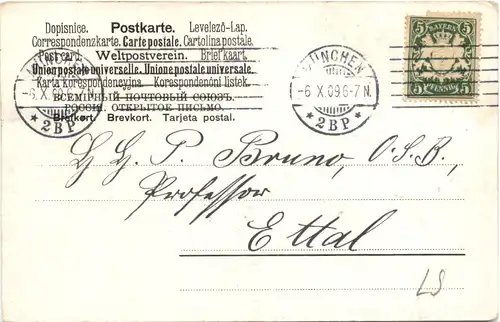 Dopisnice. Postkarte. Levelező-Lap.
Correspondenzkarte. Carte postale. Cartolina postale.
Post card. Weltpostverein. Brief kaart.
Union postale universelle. Unione postale universale.
Karta korespondencyjna. Korespondenční listek.
ВСЕМІРНЫЙ ПОЧТОВЫЙ СОЮЗЪ.
РОССІЯ. ОТКРЫТОЕ ПИСЬМО.
Brefkort. Brevkort. Tarjeta postal.
MÜNCHEN
-6.X.09 6-7 N.
* 2BP *
MÜNCHEN
-6.X.09 6-7 N.
* 2BP *
5 BAYERN 5
5 PFENNIG 5
H. H. P. Bruno, O.S.B.,
Professor
Ettal